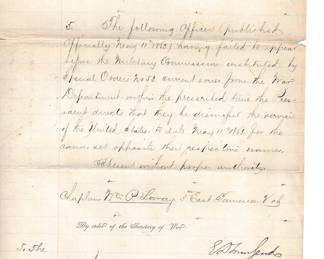 5. The following Officer (published
Officially May 11" 1863) having failed to appear
before the Military Commission instituted by
Special Orders No 53 current series from the War
Department within the prescribed time the Pres-
ident directs that they be dismissed the service
of the United States to date May 11" 1863 for the
causes set opposite their respective names.
Absent without proper authority.
Chaplain Wm P. East
By order of the Secretary of War.
E D Townsend
To The